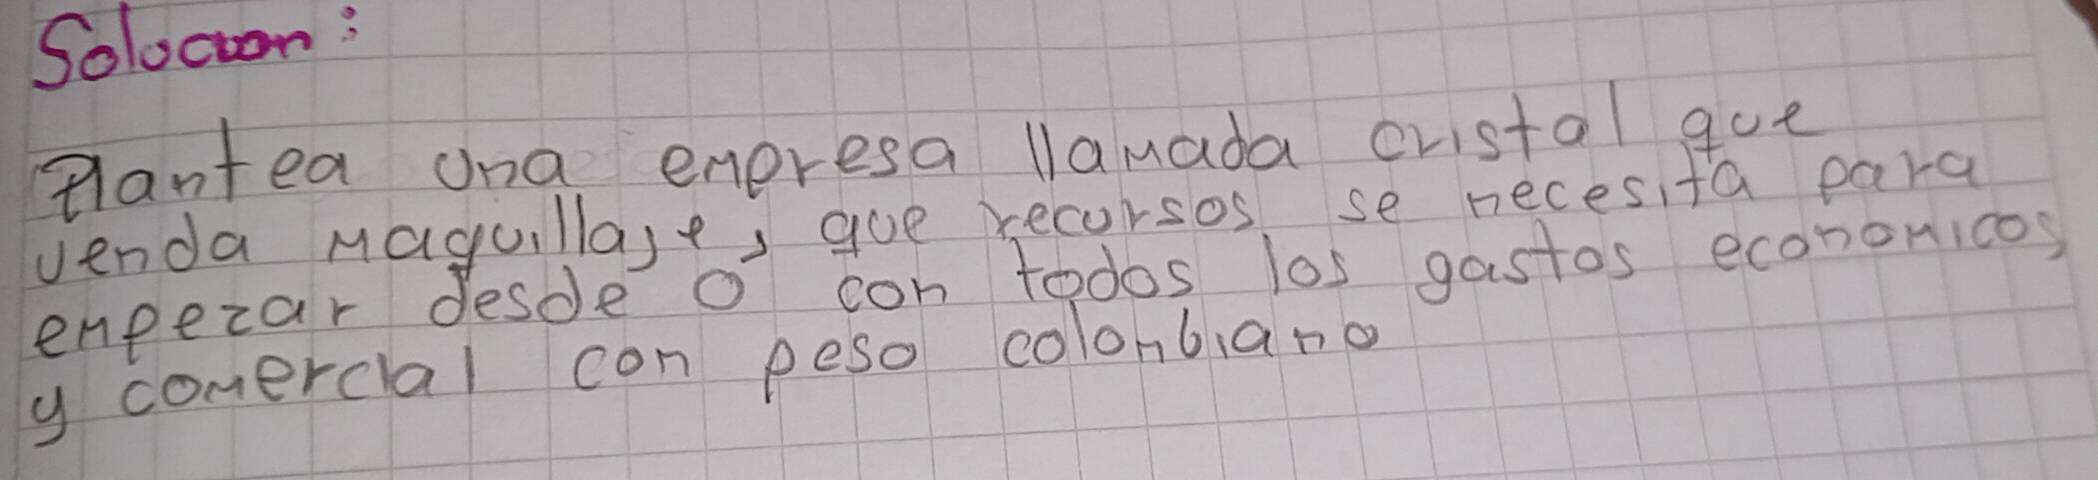 Solucion:
Plantea una empresa llamada cristal que
venda maquillaje, que recursos se necesita para
empezar desde 0 con todos los gastos economicos
y comercial con peso colombiano